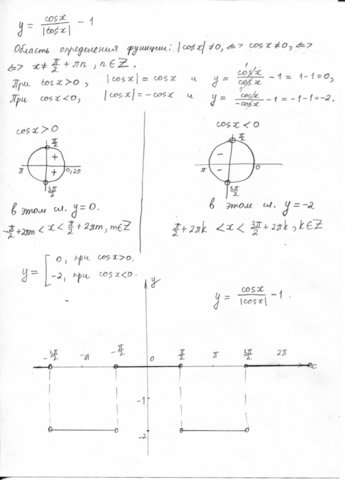 y = cosx/|cosx| - 1
Область определения функции: |cosx| ≠ 0, <=> cosx ≠ 0, <=>
<=> x ≠ π/2 + πn, n∈Z.
При cosx > 0, |cosx| = cosx и y = cosx/cosx - 1 = 1-1 = 0,
При cosx < 0, |cosx| = -cosx и y = cosx/-cosx - 1 = -1-1 = -2.
cosx > 0
cosx < 0
π/2
π/2
+
-
π
0, 2π
π
0
+
-
3π/2
3π/2
в этом сл. y = 0.
в этом сл. y = -2
-π/2 + 2πm < x < π/2 + 2πm, m∈Z
π/2 + 2πk < x < 3π/2 + 2πk, k∈Z
y = [ 0, при cosx > 0.
-2, при cosx < 0.
y
y = cosx/|cosx| - 1.
-3π/2 -π -π/2 0 π/2 π 3π/2 2π x
-1
-2